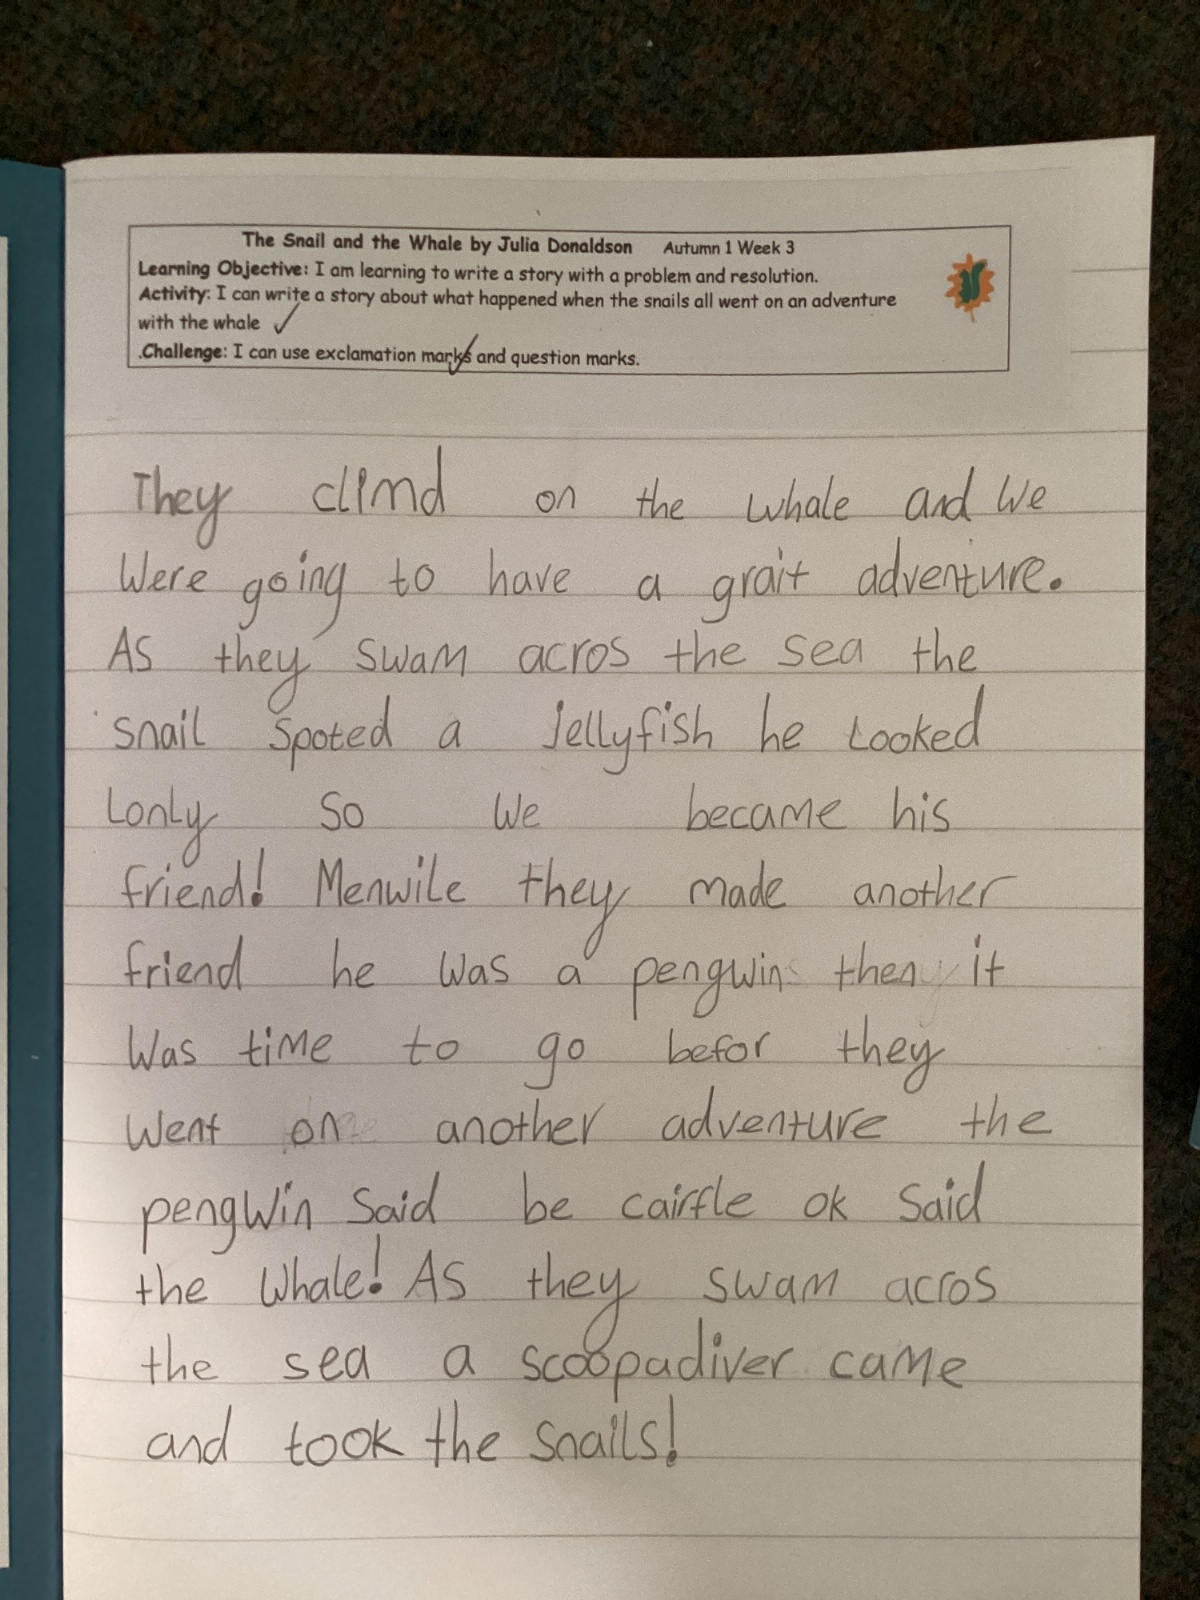 The Snail and the Whale by Julia Donaldson Autumn 1 Week 3
Learning Objective: I am learning to write a story with a problem and resolution.
Activity: I can write a story about what happened when the snails all went on an adventure
with the whale ✓
.Challenge: I can use exclamation marks and question marks.
They climd on the whale and We
Were going to have a grait adventure.
As they swam acros the sea the
snail spoted a jellyfish he Looked
Lonly so We became his
friend! Menwile they made another
friend he was a pengwin then it
Was time to go befor they
Went on another adventure the
pengwin said be cairfle ok said
the Whale! As they swam acros
the sea a scoopadiver came
and took the snails!